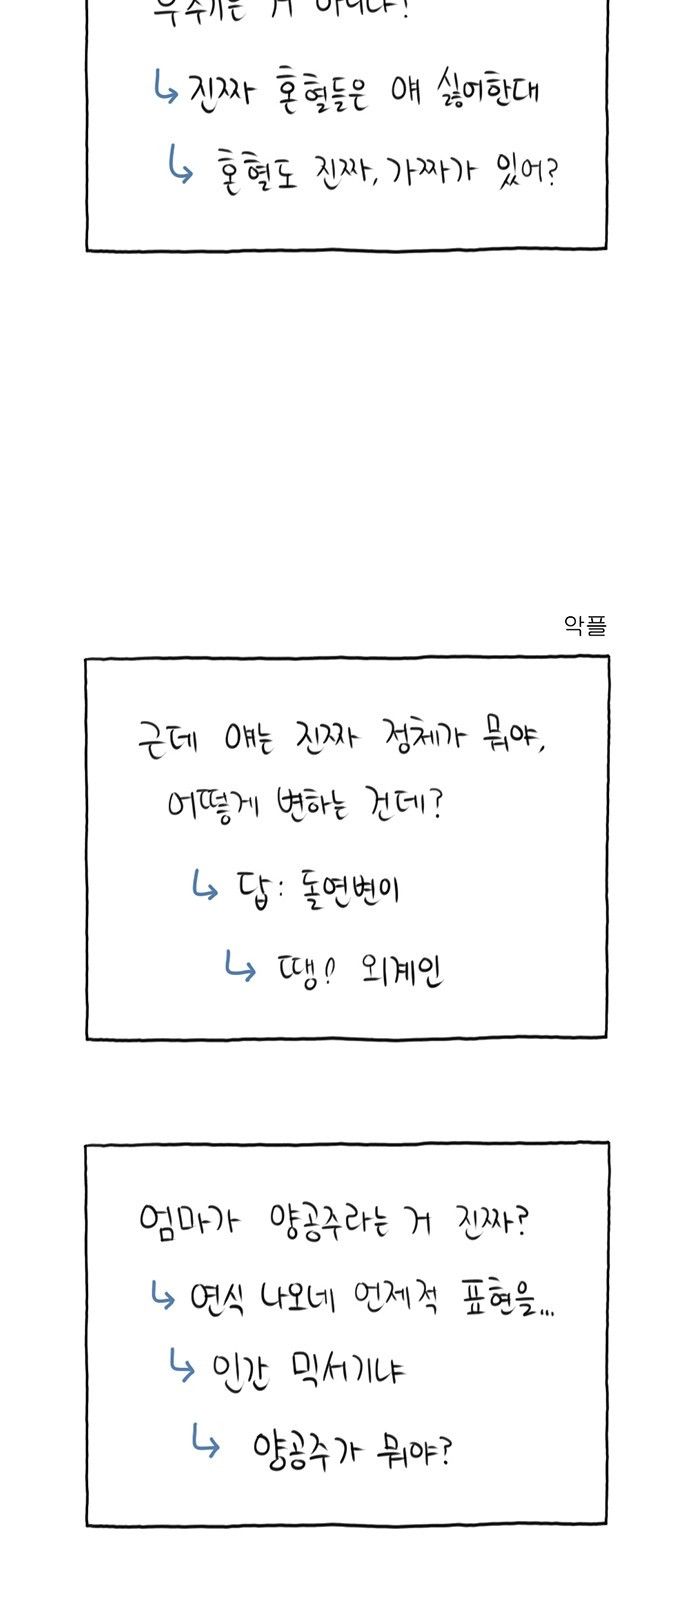 ↳ 진짜 혼혈들은 얘 싫어한대
↳ 혼혈도 진짜, 가짜가 있어?
악플
근데 얘는 진짜 정체가 뭐야,
어떻게 변하는 건데?
↳ 답: 돌연변이
↳ 땡! 외계인
엄마가 양공주라는 거 진짜?
↳ 연식 나오네 언제적 표현을...
↳ 인간 믹서기냐
↳ 양공주가 뭐야?